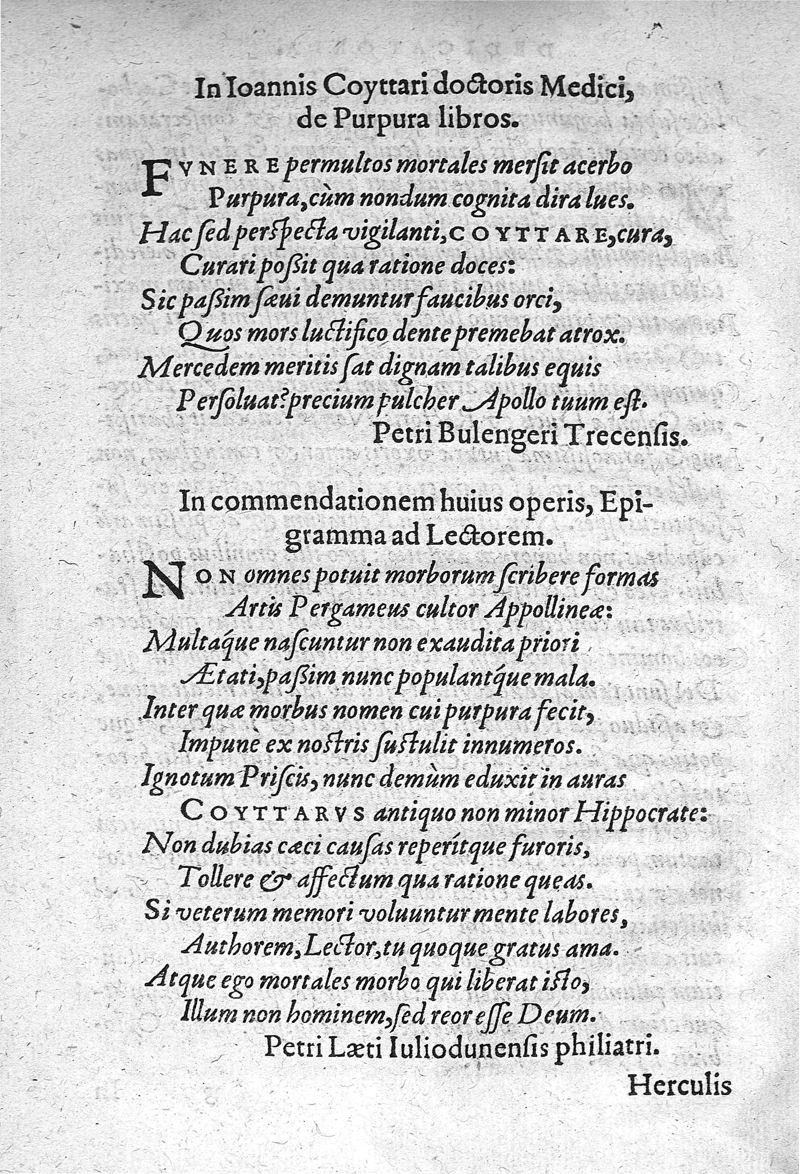 In Ioannis Coyttari doctoris Medici,
de Purpura libros.
FVNERE permultos mortales mersit acerbo
Purpura, cùm nondum cognita dira lues.
Hac sed perspecta vigilanti, COYTTARE, cura,
Curari poßit qua ratione doces:
Sic paßim sæui demuntur faucibus orci,
Quos mors luctifico dente premebat atrox.
Mercedem meritis sat dignam talibus equis
Persoluat? precium pulcher Apollo tuum est.
Petri Bulengeri Trecensis.
In commendationem huius operis, Epi-
gramma ad Lectorem.
NON omnes potuit morborum scribere formas
Artis Pergameus cultor Appollineæ:
Multaq́ue nascuntur non exaudita priori
Ætati, paßim nunc populantq́ue mala.
Inter quæ morbus nomen cui purpura fecit,
Impune ex nostris sustulit innumeros.
Ignotum Priscis, nunc demùm eduxit in auras
COYTTARVS antiquo non minor Hippocrate:
Non dubias cæci causas reperítque furoris,
Tollere & affectum qua ratione queas.
Si veterum memori voluuntur mente labores,
Authorem, Lector, tu quoque gratus ama.
Atque ego mortales morbo qui liberat isto,
Illum non hominem, sed reor esse Deum.
Petri Læti Iuliodunensis philiatri.
Herculis